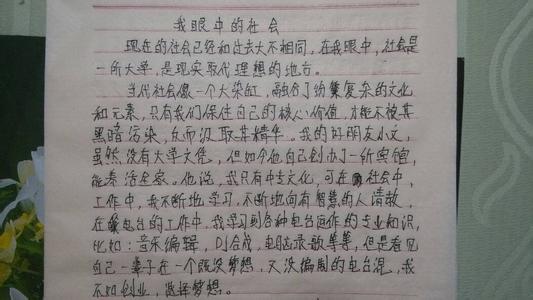 我眼中的社会
现在的社会已经和过去大不相同，在我眼中，社会是
一所大学，是现实取代理想的地方。
当代社会像一个大染缸，融合了纷繁复杂的文化
和元素，只有我们保住自己的核心价值，才能不被其
黑暗污染，反而汲取其精华。我的好朋友小文，
虽然没有大学文凭，但如今他自己创办了一所宾馆，
能养活全家。他说，我只有中专文化，可在社会中，
工作中，我不断地学习，不断地向有智慧的人请教，
在电台的工作中，我学习到各种电台运作的专业知识，
比如：音乐编辑，DJ合成，电脑录歌等等，但是看见
自己一辈子在一个既没梦想，又没编制的电台混，我
不如创业，选择梦想。